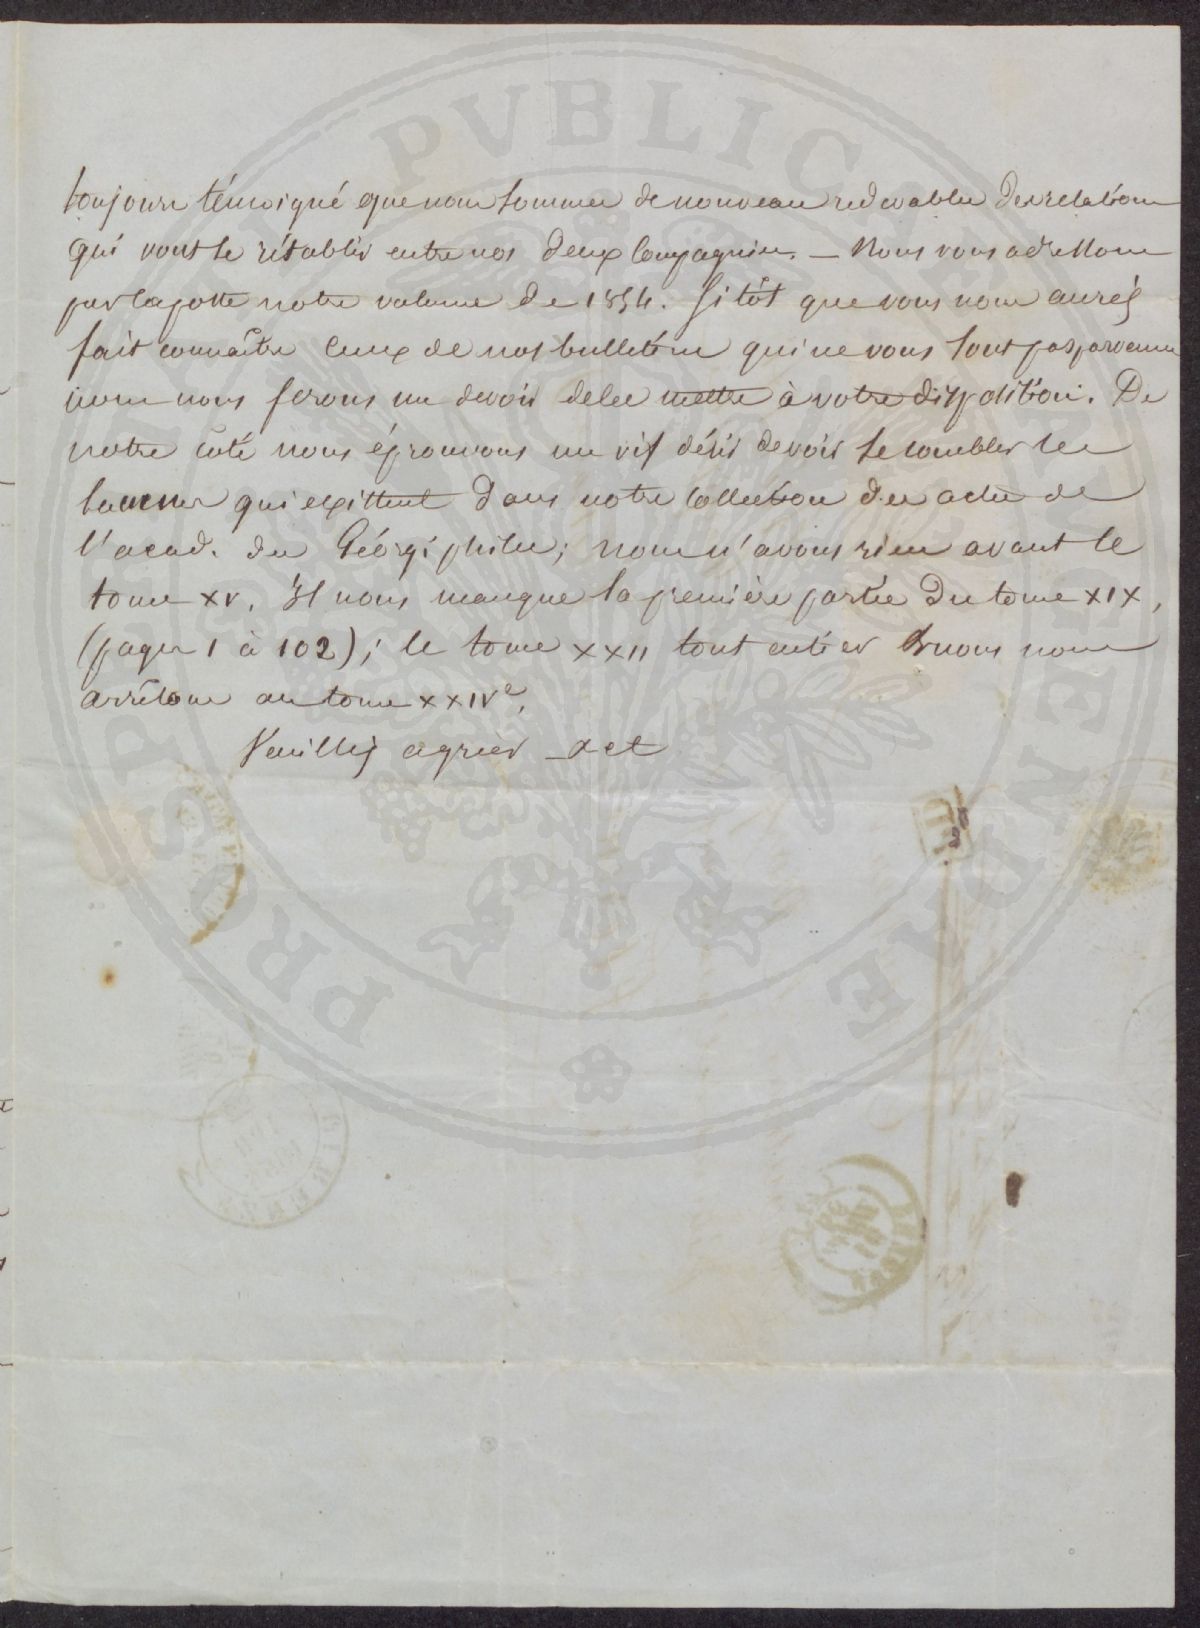 toujours témoigné que nous sommes de nouveau redevables des relations
qui vont se rétablir entre nos deux Compagnies. — Nous vous adressons
par la poste notre volume de 1854. Sitôt que vous nous aurés
fait connaître ceux de nos bulletins qui ne vous sont pas parvenus
nous nous ferons un devoir de les mettre à votre disposition. De
notre côté nous éprouvons un vif désir de voir se combler les
lacunes qui existent dans notre Collection des actes de
l'acad. des Géorgiphiles; nous n'avons rien avant le
tome XV. Il nous manque la première partie du tome XIX,
(pages 1 à 102); le tome XXII tout entier & nous nous
arrêtons au tome XXIVe.
Veuillés agréer &et
PVBLICAE
PROSPERITATI AVGENDAE
PD
FIRENZE